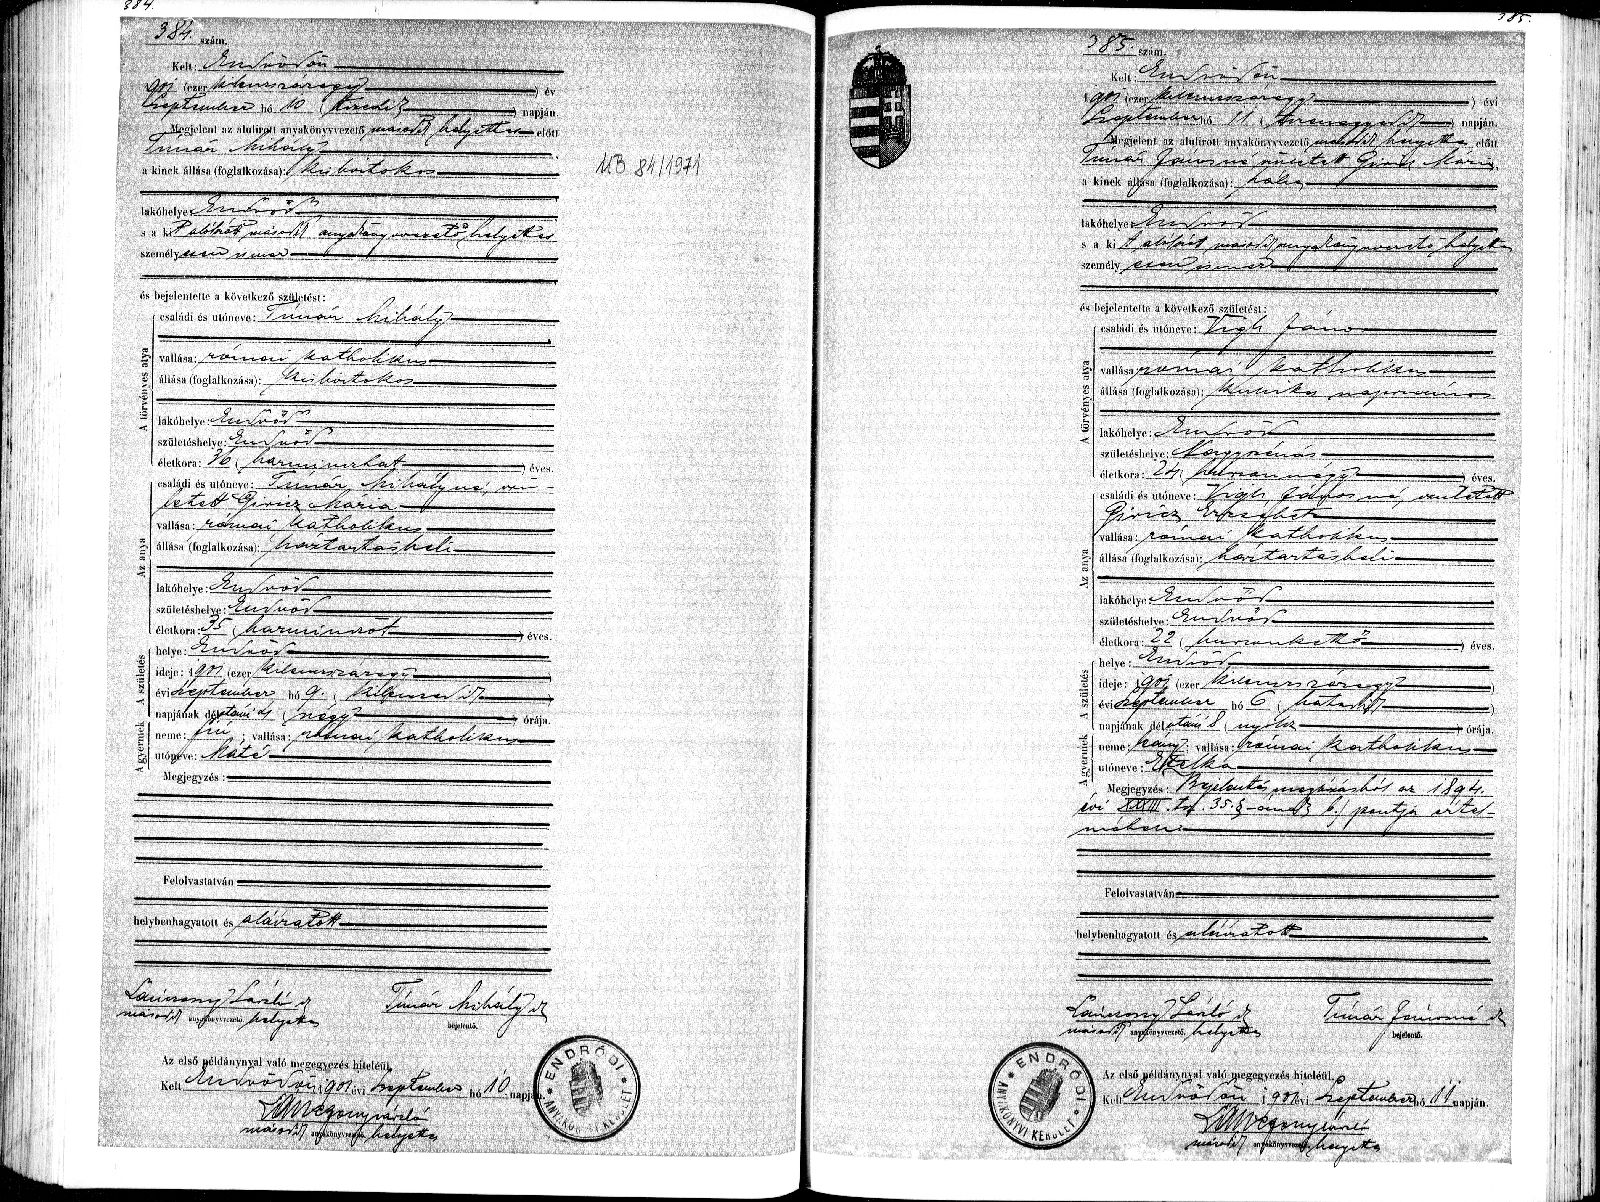 384.
384. szám.
Kelt: Endrődön
901 (ezer kilenczszázegy) év
szeptember hó 10 (tizedik) napján.
Megjelent az alulírott anyakönyvvezető második helyettes előtt
Tímár Mihály
a kinek állása (foglalkozása): kisbirtokos
lakóhelye: Endrőd
s a kit alólírt második anyakönyvvezető helyettes
személyesen ismer
és bejelentette a következő születést:
A törvényes atya
családi és utóneve: Tímár Mihály
vallása: római katholikus
állása (foglalkozása): kisbirtokos
lakóhelye: Endrőd
születéshelye: Endrőd
életkora: 36 (harminczhat) éves.
Az anya
családi és utóneve: Tímár Mihályné, szü-
letett Giricz Mária
vallása: római katholikus
állása (foglalkozása): háztartásbeli
lakóhelye: Endrőd
születéshelye: Endrőd
életkora: 35 (harminczöt) éves.
A születés
helye: Endrőd
ideje: 1901 (ezer kilenczszázegy)
évi szeptember hó 9. (kilenczedik)
napjának délutáni 4 (négy) órája.
A gyermek
neme: fiú; vallása: római katholikus
utóneve: Máté
Megjegyzés:
Felolvastatván
helybenhagyatott és aláíratott
László
második anyakönyvvezető helyettes
Tímár Mihály
bejelentő.
Az első példánynyal való megegyezés hiteléül.
Kelt Endrődön 1901 évi szeptember hó 10. napján.
második anyakönyvvezető helyettes
ENDRŐDI
ANYAKÖNYVI KERÜLET
84/1971
385.
385. szám.
Kelt Endrődön
1901 (ezer kilenczszázegy) évi
szeptember hó 11. (tizenegyedik) napján.
Megjelent az alulírott anyakönyvvezető második helyettes előtt
Tímár Jánosné született Mária,
a kinek állása (foglalkozása): bába
lakóhelye: Endrőd
s a kit alólírt második anyakönyvvezető helyettes
személyesen ismer
és bejelentette a következő születést:
A törvényes atya
családi és utóneve: Vigh János
vallása: római katholikus
állása (foglalkozása): napszámos
lakóhelye: Endrőd
születéshelye: Nagyszénás
életkora: 24 (huszonnégy) éves.
Az anya
családi és utóneve: Vigh Jánosné, született
Giricz Erzsébet
vallása: római katholikus
állása (foglalkozása): háztartásbeli
lakóhelye: Endrőd
születéshelye: Endrőd
életkora: 22 (huszonkettő) éves.
A születés
helye: Endrőd
ideje: 1901 (ezer kilenczszázegy)
évi szeptember hó 6 (hatodik)
napjának délutáni 8 (nyolcz) órája.
A gyermek
neme: leány; vallása: római katholikus
utóneve: Etelka
Megjegyzés: Bejelentés megbízásból az 1894.
évi XXXIII. tcz. 35. §-ának b.) pontja értel-
mében.
Felolvastatván
helybenhagyatott és aláíratott
László
második anyakönyvvezető, helyettes
Tímár Jánosné
bejelentő.
Az első példánynyal való megegyezés hiteléül.
Kelt Endrődön 1901 évi Szeptember hó 11 napján.
második anyakönyvvezető, helyettes
ENDRŐDI
ANYAKÖNYVI KERÜLET